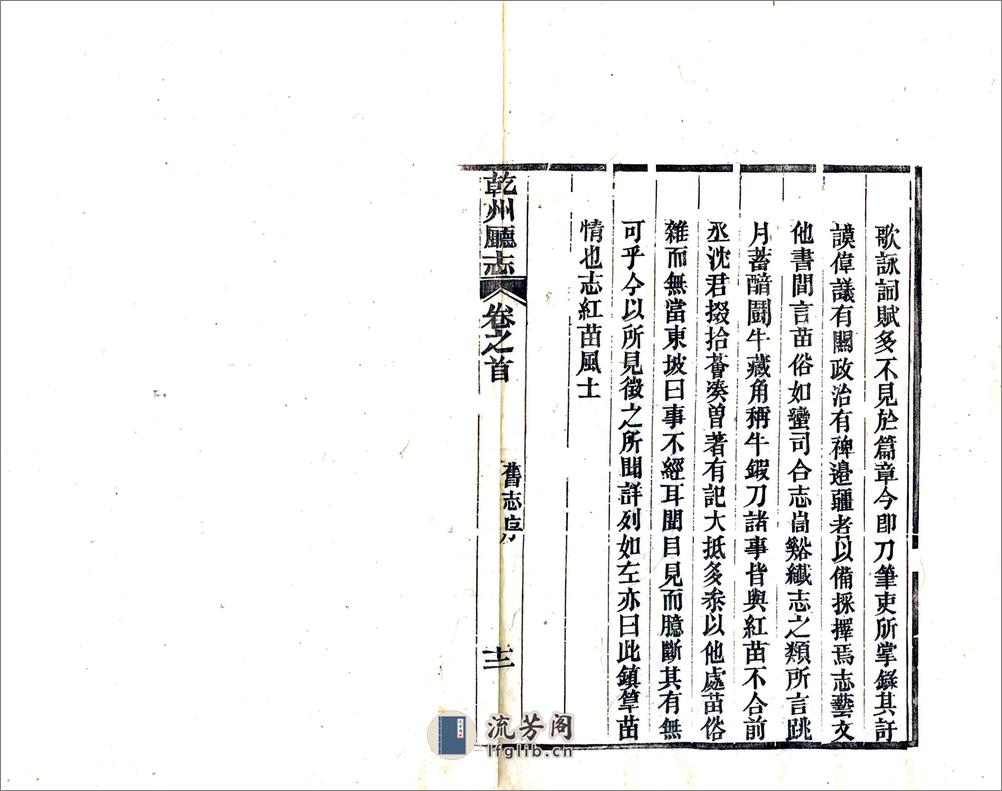 歌詠詞賦多不見於篇章今即刀筆吏所掌錄其訏
謨偉議有關政治有裨邊疆者以備採擇焉志藝文
他書間言苗俗如蠻司合志峝谿纖志之類所言跳
月蓄醅鬬牛藏角稱牛鍜刀諸事皆與紅苗不合前
丞沈君掇拾薈凑曽著有記大抵多叅以他處苗俗
雜而無當東坡曰事不經耳聞目見而臆斷其有無
可乎今以所見徵之所聞詳列如左亦曰此鎮筸苗
情也志紅苗風土
乾州廳志
卷之首
舊志序
十二
流芳阁
lfglib.cn